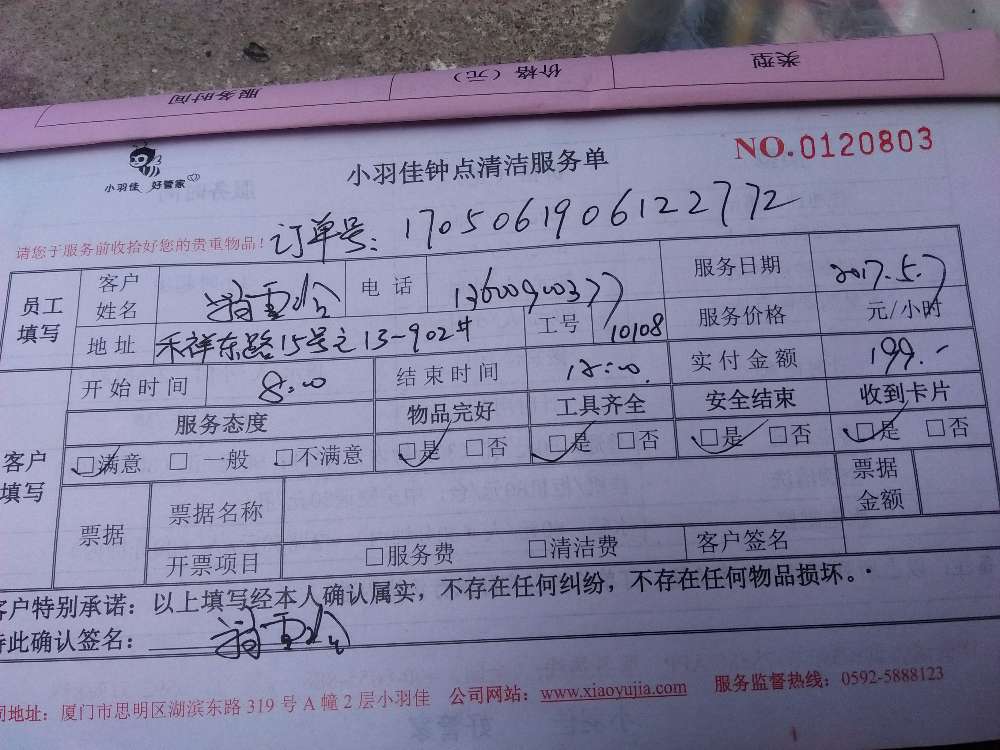 类型
价格（元）
服务时间
小羽佳 好管家
小羽佳钟点清洁服务单
NO.0120803
请您于服务前收拾好您的贵重物品！
订单号：1705061906122772
员工填写
客户姓名
电 话
服务日期 2017.5.7
地 址 禾祥东路15号之13-902#
工号 10108
服务价格 元/小时
客户填写
开始时间 8:00
结束时间 12:00
实付金额 199.-
服务态度 物品完好 工具齐全 安全结束 收到卡片
□满意 □一般 □不满意 □是 □否 □是 □否 □是 □否 □是 □否
票据 票据名称 票据金额
开票项目 □服务费 □清洁费 客户签名
客户特别承诺：以上填写经本人确认属实，不存在任何纠纷，不存在任何物品损坏。
特此确认签名：
司地址：厦门市思明区湖滨东路 319 号 A 幢 2 层小羽佳 公司网站：www.xiaoyujia.com 服务监督热线：0592-5888123